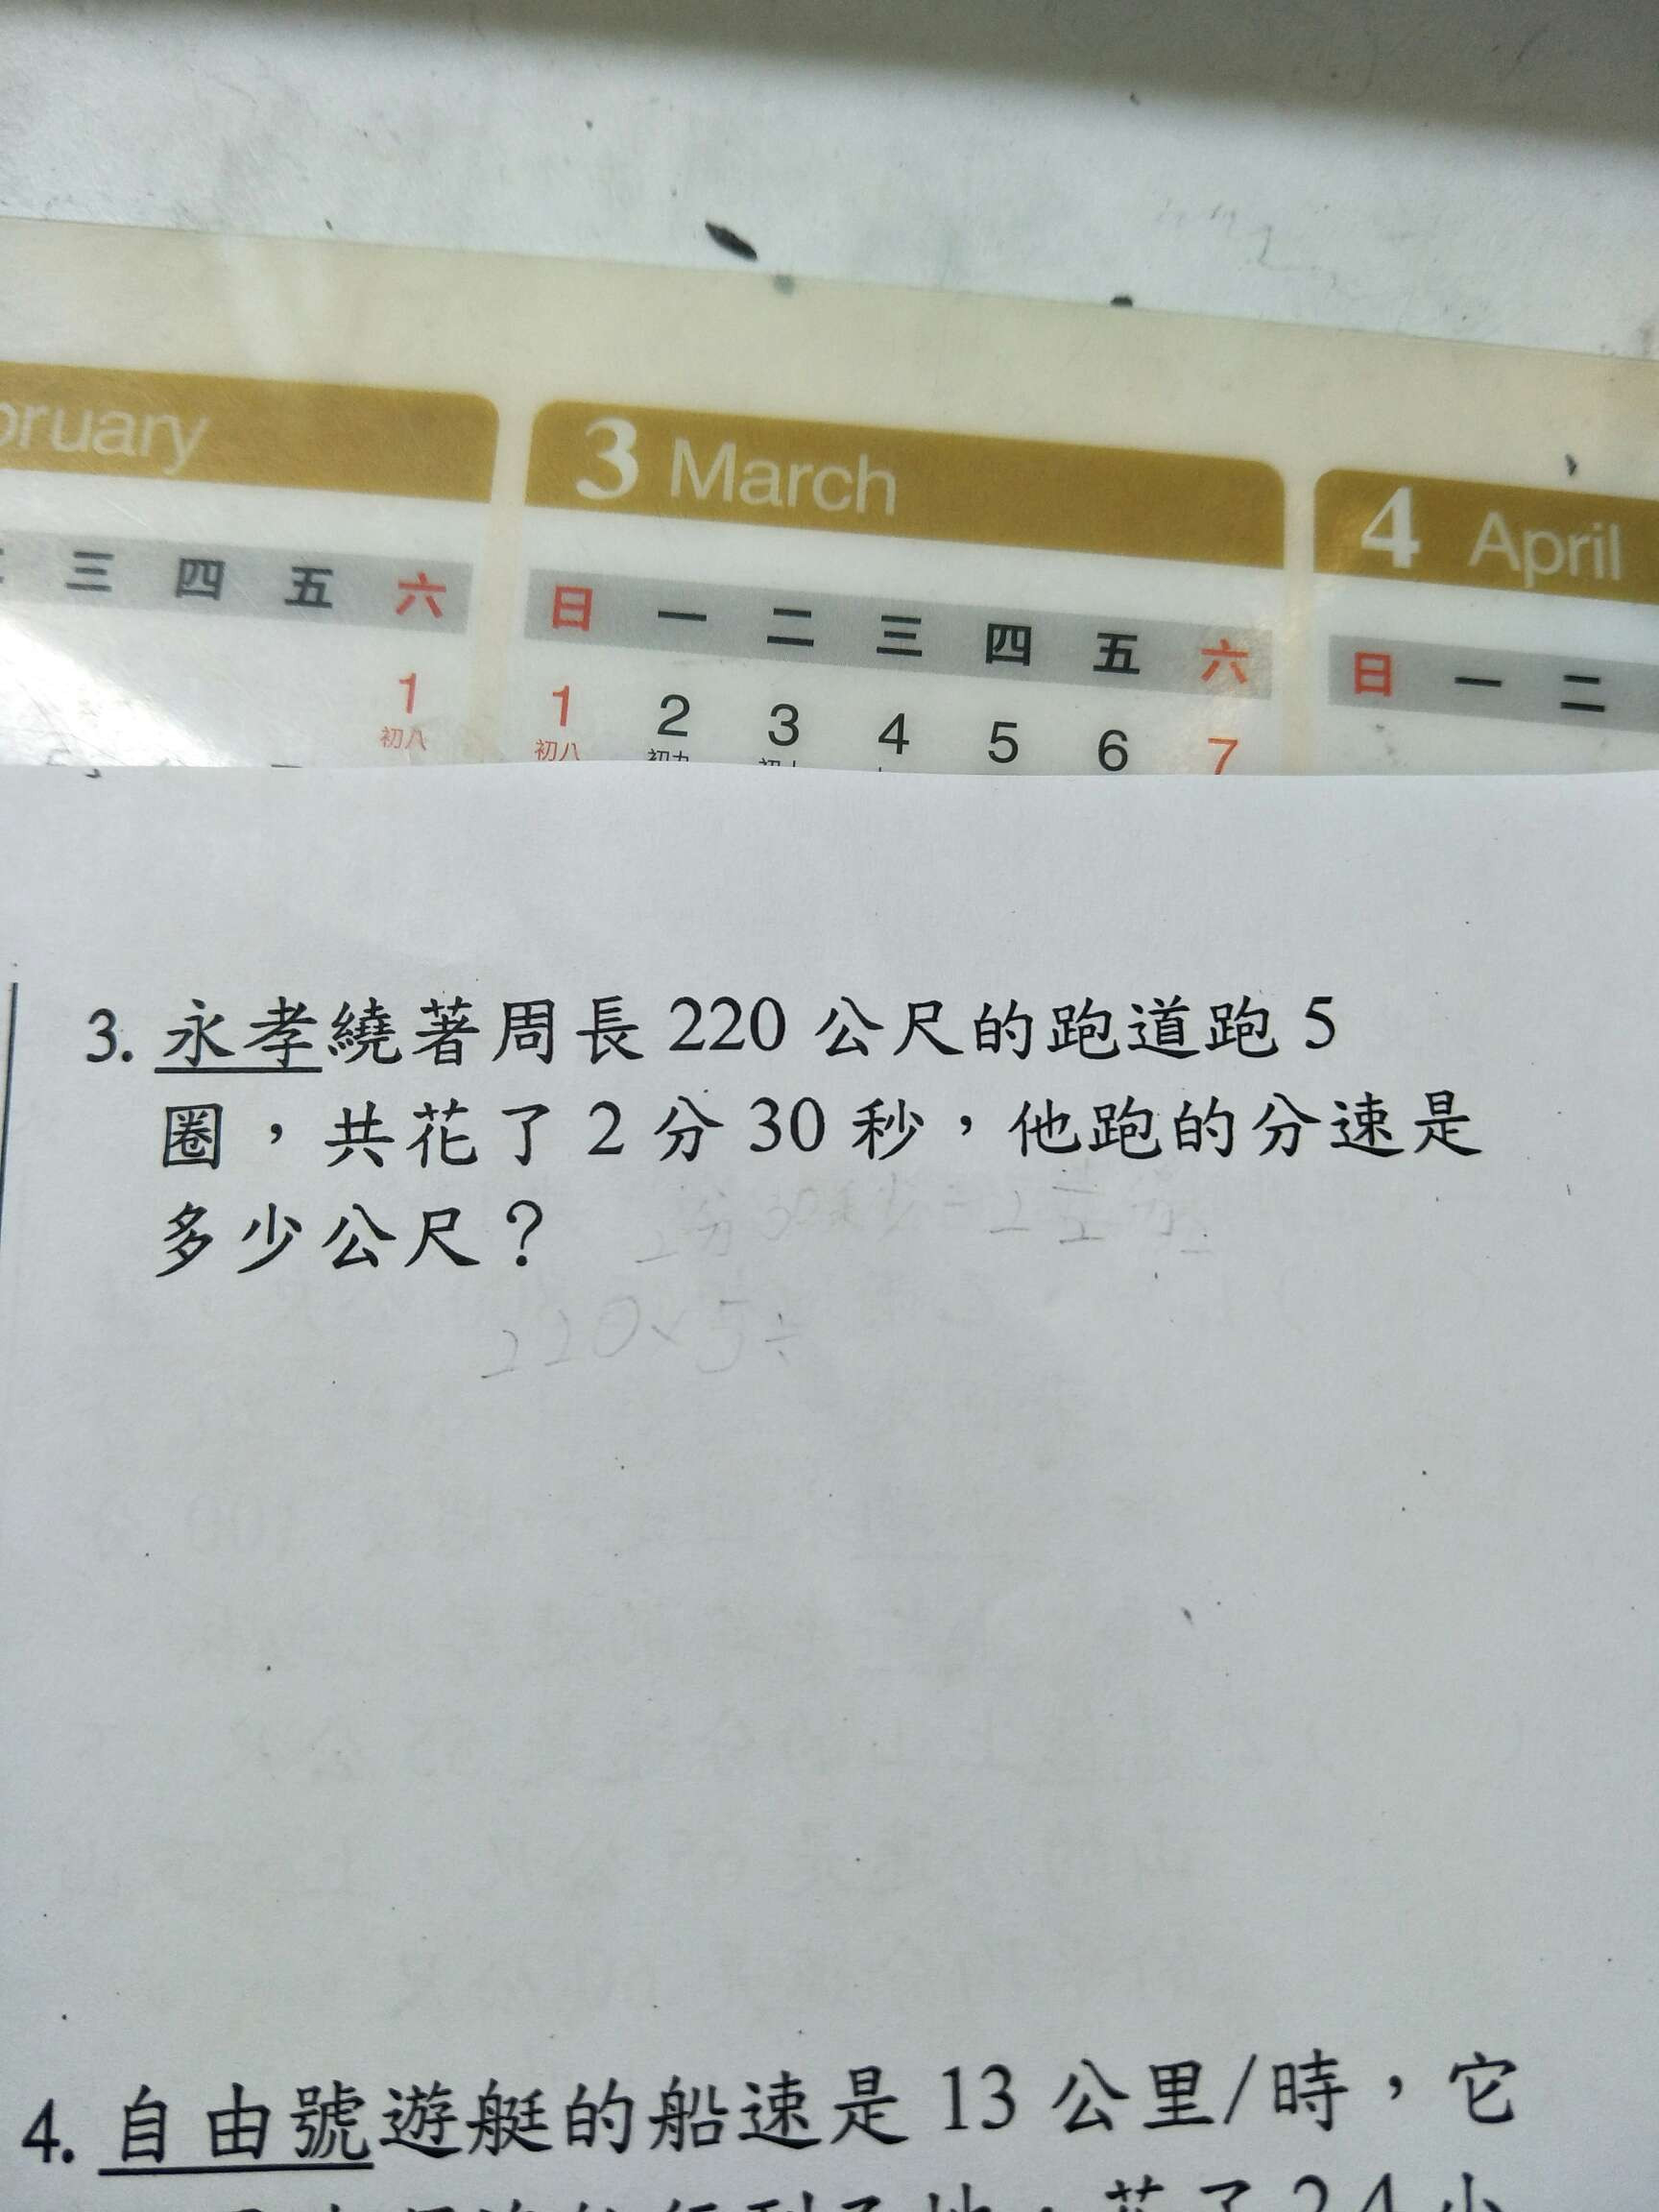 bruary
3 March
4 April
三 四 五 六
日 一 二 三 四 五 六
日 一 二
1
初八
1 2 3 4 5 6 7
初八 初九
3. 永孝繞著周長 220 公尺的跑道跑 5
圈，共花了 2 分 30 秒，他跑的分速是
多少公尺？
2分30秒=2 1/2 分
220×5÷
4. 自由號遊艇的船速是 13 公里/時，它